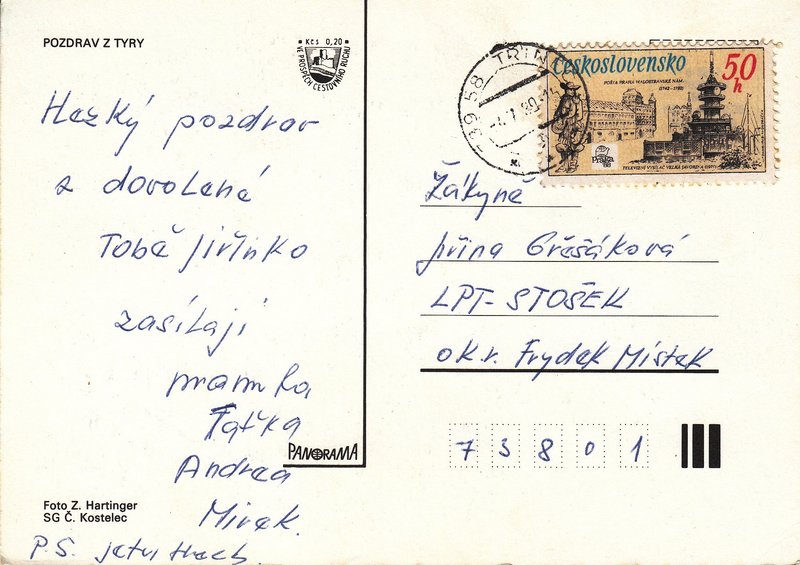 POZDRAV Z TYRY
Kčs 0,20
VE PROSPĚCH CESTOVNÍHO RUCHU
Hezký pozdrav
z dovolené
Tobě Jiřinko
zasílají
mamka
Taťka
Andrea
Mirek.
P.S.
PANORAMA
Foto Z. Hartinger
SG Č. Kostelec
739 58 TŘIN
Československo
50
h
POŠTA PRAHA MALOSTRANSKÉ NÁM.
TELEVIZNÍ VYSÍLAČ VELKÁ JAVORINA
Praha
Žákyně
Jiřina Grešáková
LPT-STOŠEK
okr. Frydek Místek
73801